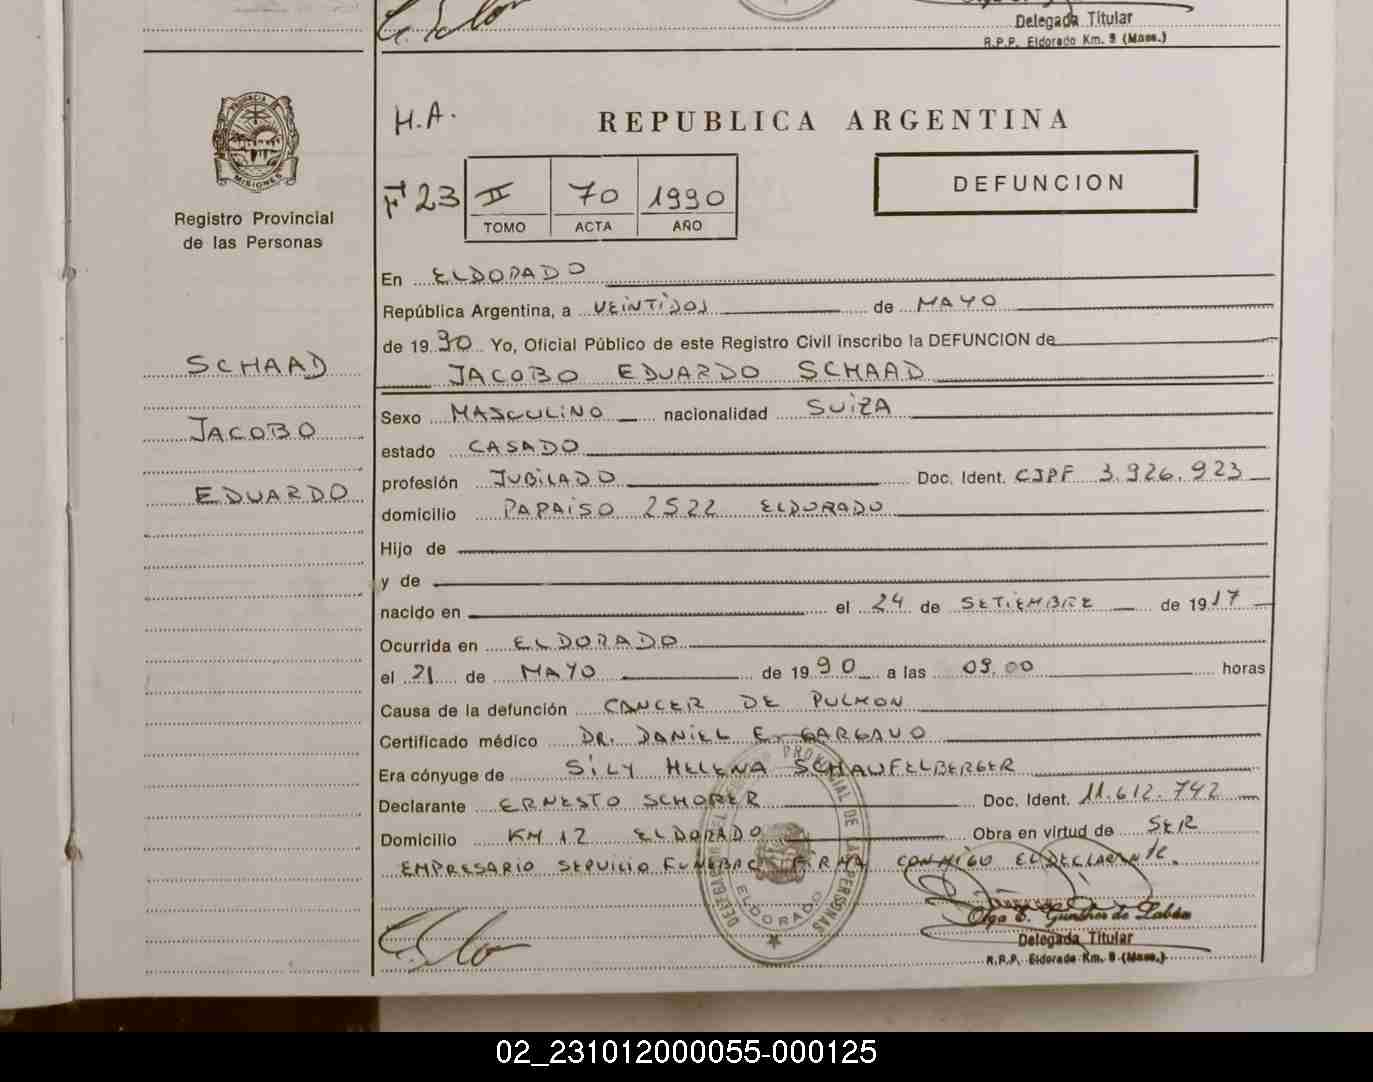 Delegada Titular
R.P.P. Eldorado Km. 9 (Mnes.)
PROVINCIA DE
MISIONES
Registro Provincial
de las Personas
SCHAAD
JACOBO
EDUARDO
H.A.
REPUBLICA ARGENTINA
Fº 23 II 70 1990
TOMO ACTA AÑO
DEFUNCION
En ELDORADO
República Argentina, a VEINTIDOS de MAYO
de 1990 Yo, Oficial Público de este Registro Civil inscribo la DEFUNCION de
JACOBO EDUARDO SCHAAD
Sexo MASCULINO nacionalidad SUIZA
estado CASADO
profesión JUBILADO Doc. Ident. CIPF 3.926.923
domicilio PARAISO 2522 ELDORADO
Hijo de
y de
nacido en el 24 de SETIEMBRE de 1917
Ocurrida en ELDORADO
el 21 de MAYO de 1990 a las 09.00 horas
Causa de la defunción CANCER DE PULMON
Certificado médico DR. DANIEL E.
Era cónyuge de SILY HELENA SCHAUFELBERGER
Declarante ERNESTO SCHORER Doc. Ident. 11.612.742
Domicilio KM 12 ELDORADO Obra en virtud de SER
EMPRESARIO SERVICIO FUNEBRE FIRMA CONMIGO EL DECLARANTE.
PROVINCIAL DE LAS PERSONAS
ELDORADO
Olga E. Gunther de Labán
Delegada Titular
R.P.P. Eldorado Km. 9 (Mnes.)
02_231012000055-000125